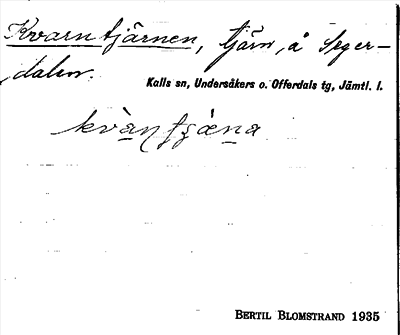 Kvarntjärnen, tjärn, å Seger-
dalen.
Kalls sn, Undersåkers o. Offerdals tg, Jämtl. l.
BERTIL BLOMSTRAND 1935